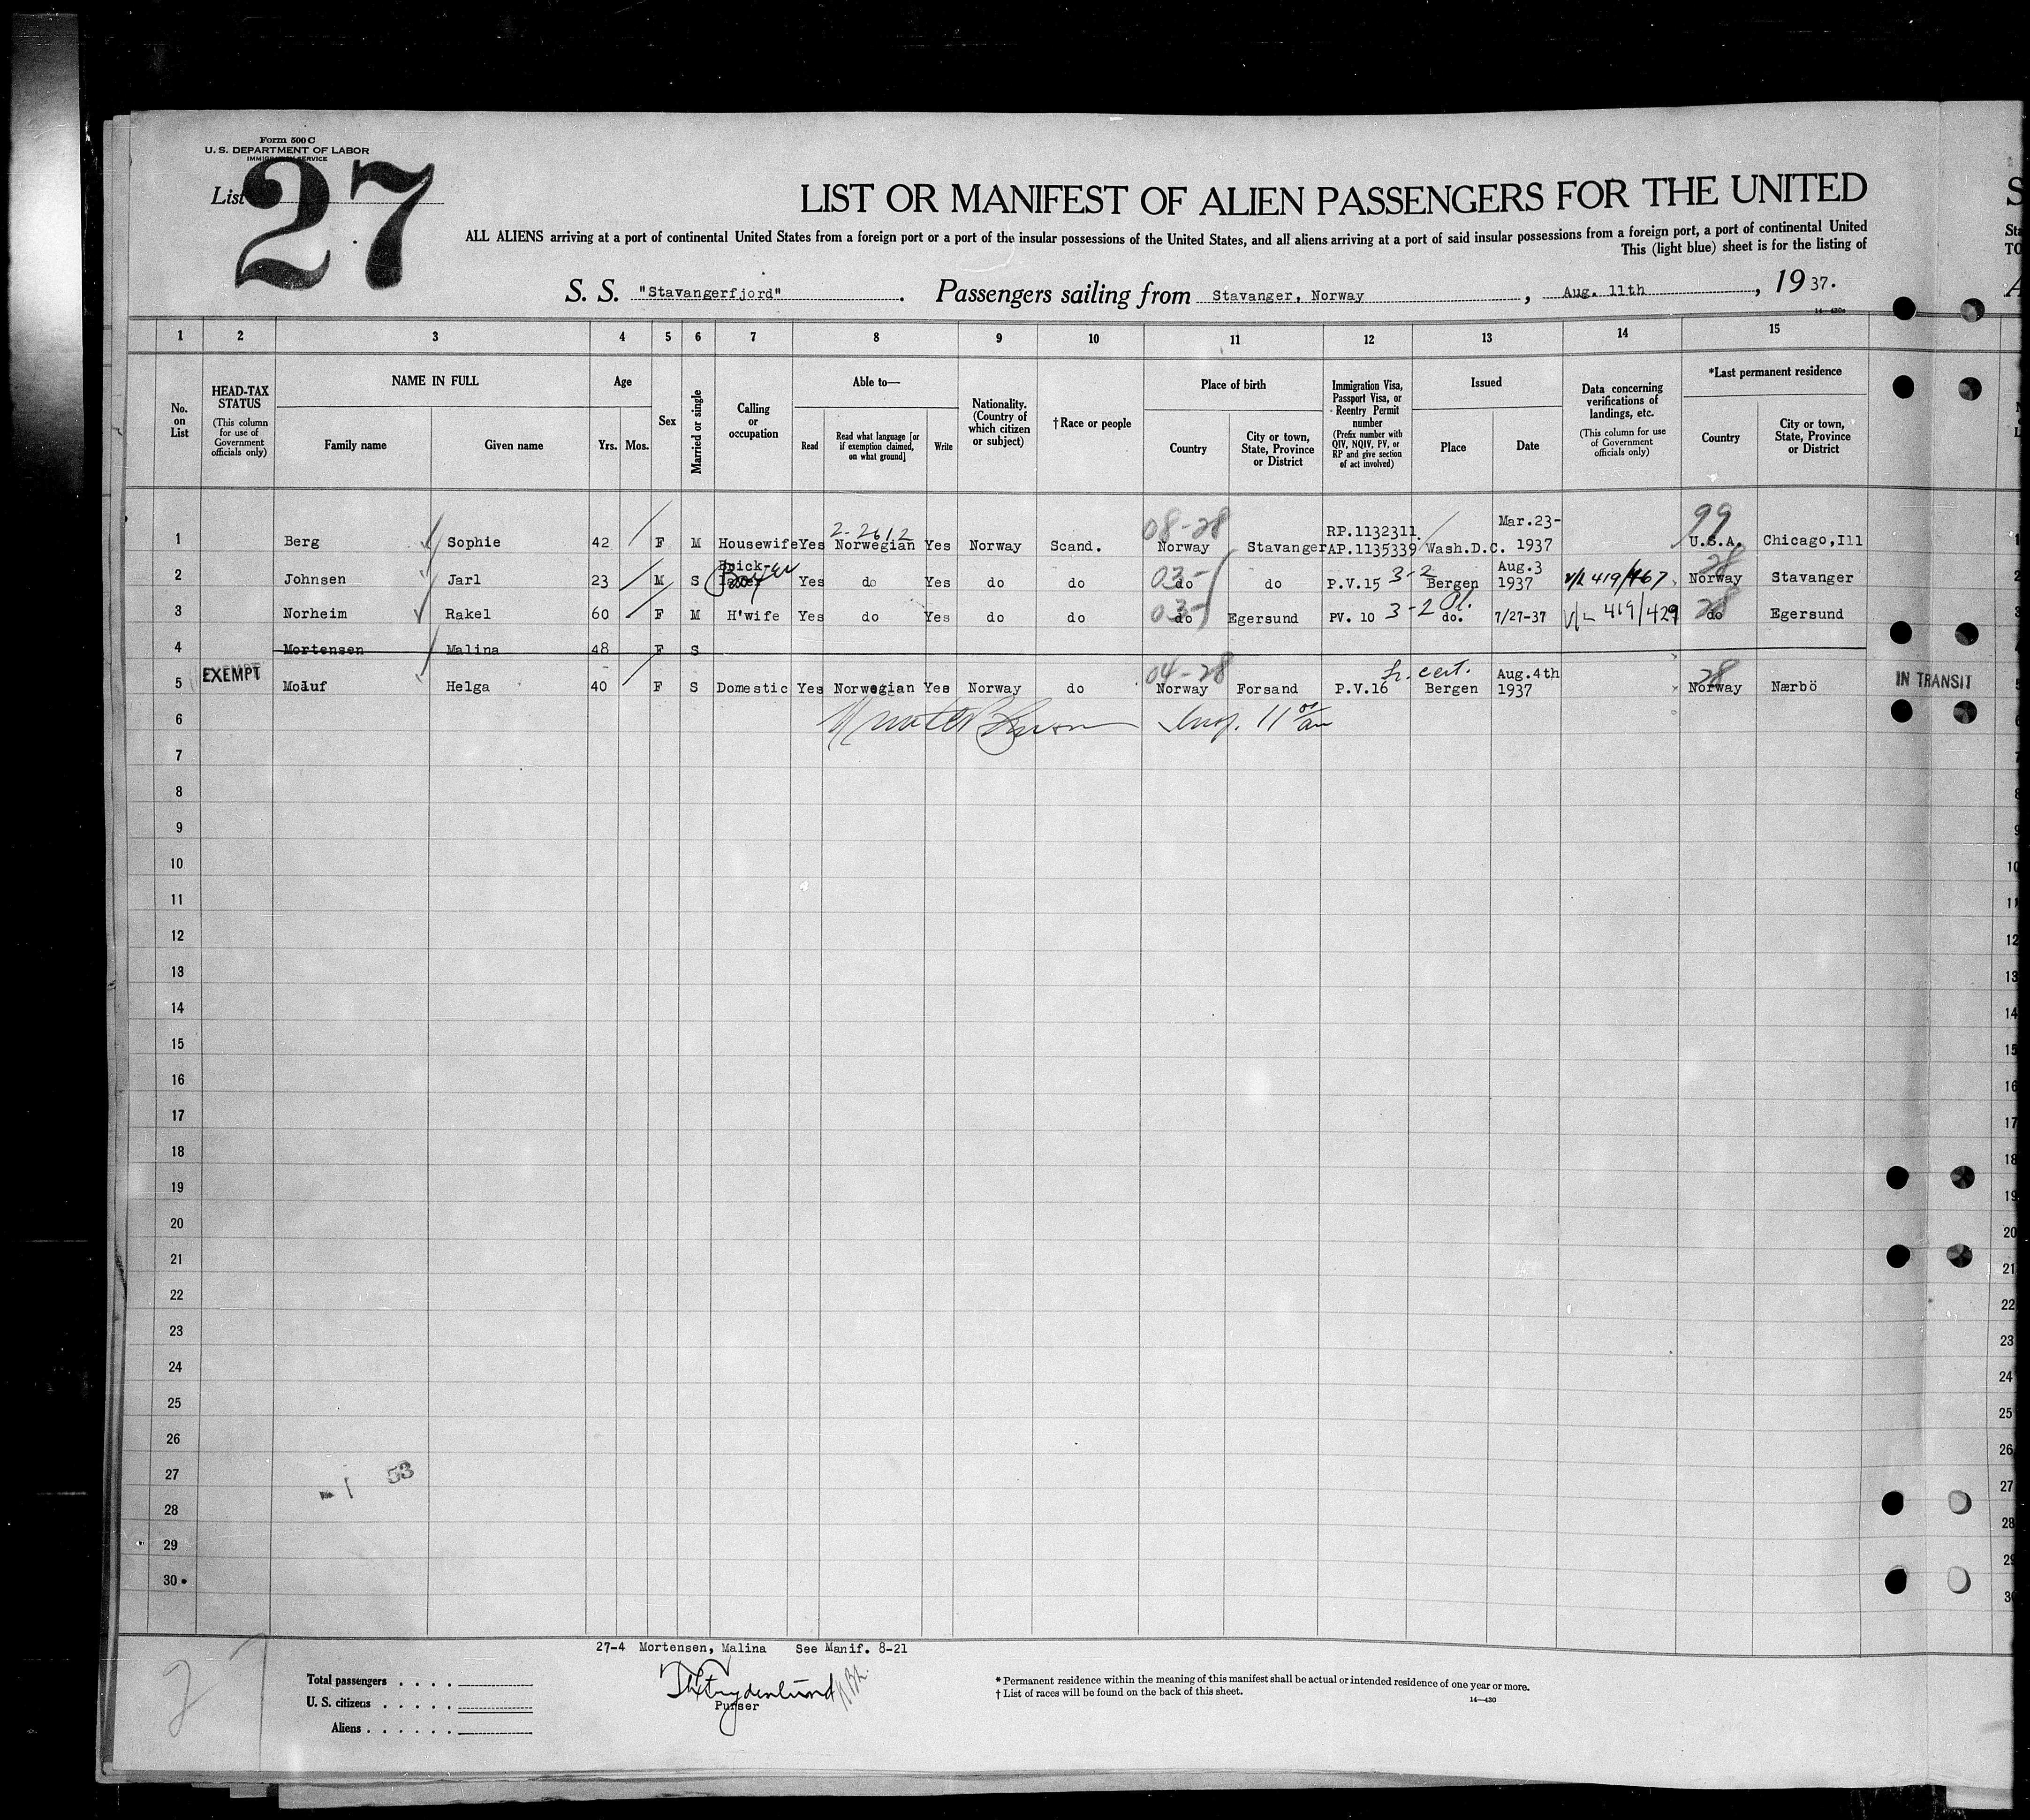 Form 500 C
U. S. DEPARTMENT OF LABOR
IMMIGRATION SERVICE
List 27
LIST OR MANIFEST OF ALIEN PASSENGERS FOR THE UNITED
ALL ALIENS arriving at a port of continental United States from a foreign port or a port of the insular possessions of the United States, and all aliens arriving at a port of said insular possessions from a foreign port, a port of continental United
This (light blue) sheet is for the listing of
S. S. "Stavangerfjord" . Passengers sailing from Stavanger, Norway , Aug. 11th , 1937.
14—430a
1 2 3 4 5 6 7 8 9 10 11 12 13 14 15
No. on List
HEAD-TAX STATUS
(This column for use of Government officials only)
NAME IN FULL
Family name
Given name
Age
Yrs. Mos.
Sex
Married or single
Calling or occupation
Able to—
Read
Read what language [or if exemption claimed, on what ground]
Write
Nationality. (Country of which citizen or subject)
†Race or people
Place of birth
Country
City or town, State, Province or District
Immigration Visa, Passport Visa, or Reentry Permit number
(Prefix number with QIV, NQIV, PV, or RP and give section of act involved)
Issued
Place
Date
Data concerning verifications of landings, etc.
(This column for use of Government officials only)
*Last permanent residence
Country
City or town, State, Province or District
2-2612 08-28 RP.1132311. Mar.23- 99
1 Berg Sophie 42 F M Housewife Yes Norwegian Yes Norway Scand. Norway Stavanger AP.1135339 Wash.D.C. 1937 U.S.A. Chicago,Ill
Brick- 03- 3-2 Aug.3 28
2 Johnsen Jarl 23 M S Yes do Yes do do do do P.V.15 Bergen 1937 V/L 419/467 Norway Stavanger
03- 3-2 28
3 Norheim Rakel 60 F M H'wife Yes do Yes do do do Egersund PV. 10 do. 7/27-37 V/L 419/429 do Egersund
4 Mortensen Malina 48 F S
EXEMPT 04-28 cert. Aug.4th 28
5 Moluf Helga 40 F S Domestic Yes Norwegian Yes Norway do Norway Forsand P.V.16 Bergen 1937 Norway Nærbö IN TRANSIT
6 Insp. 11
7
8
9
10
11
12
13
14
15
16
17
18
19
20
21
22
23
24
25
26
27
53
28
29
30
27-4 Mortensen, Malina See Manif. 8-21
27
Total passengers . . . .
U. S. citizens . . . . .
Aliens . . . . . .
Purser
* Permanent residence within the meaning of this manifest shall be actual or intended residence of one year or more.
† List of races will be found on the back of this sheet.
14—430